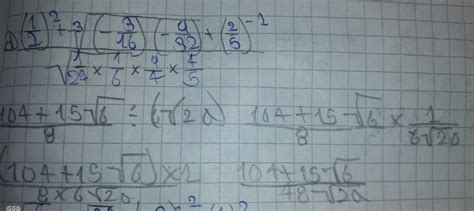 a) (1/2)² + 3 (-3/16) (-9/32) + (2/5)⁻¹
√(1/24 × 1/6 × 9/4 × 4/5
104 + 15√6 / 8 ÷ 6√20 104 + 15√6 / 8 × 1 / 6√20
(104 + 15√6) × 1 / 8 × 6√20 104 + 15√6 / 48√20